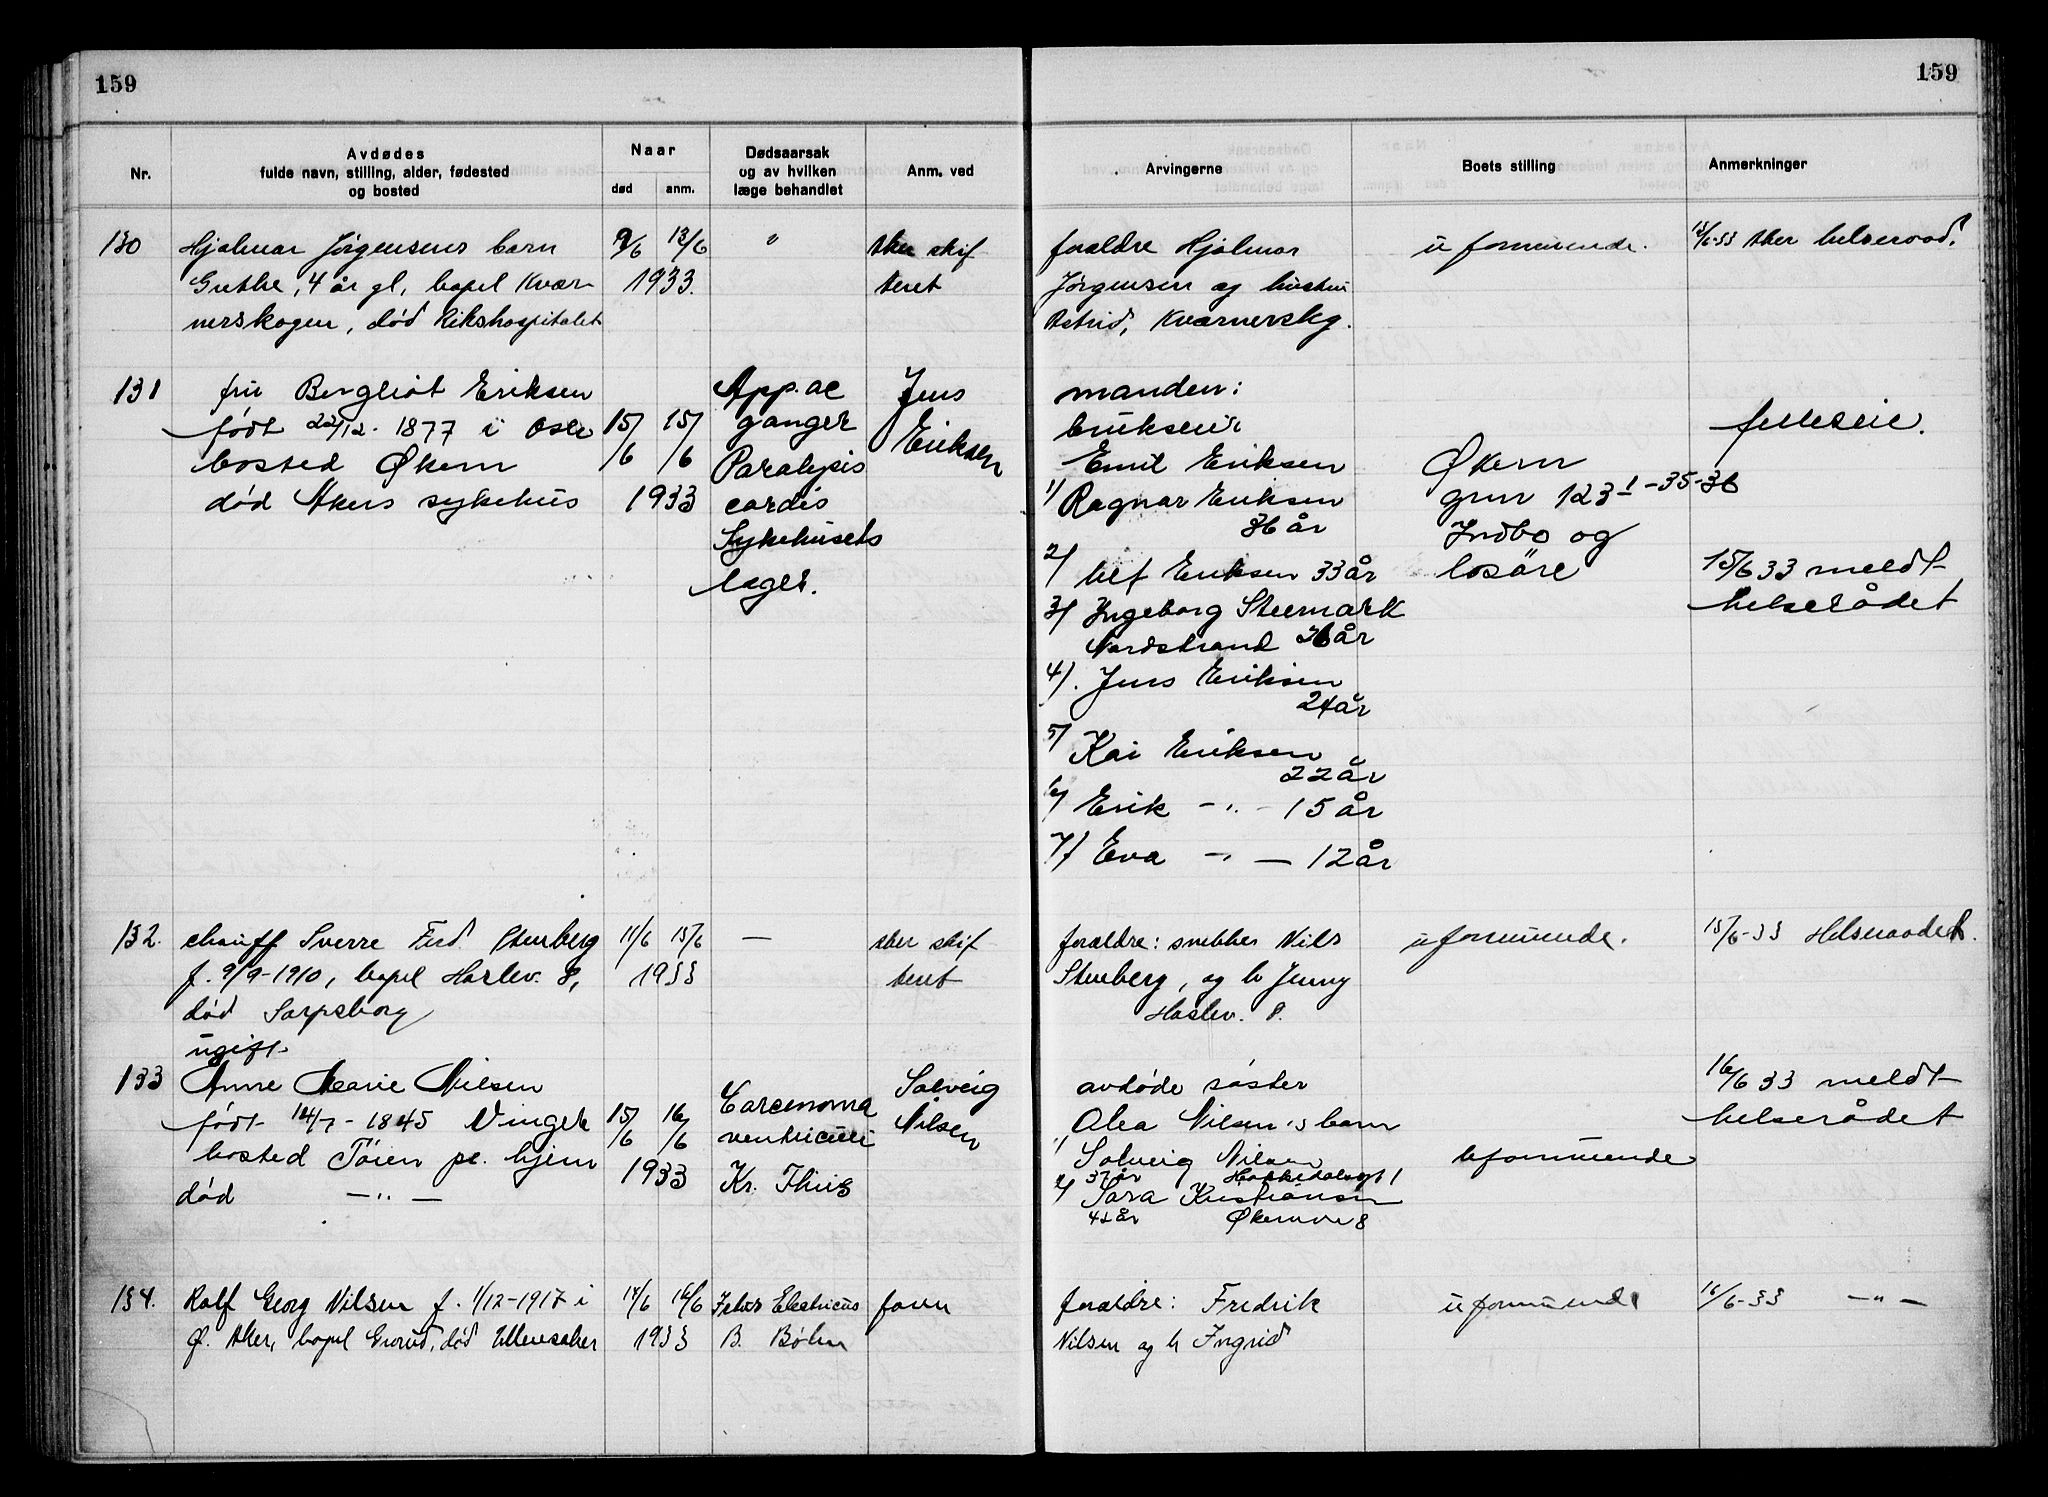 159
159
Nr.
Avdødes
fulde navn, stilling, alder, fødested
og bosted
Naar
død
anm.
Dødsaarsak
og av hvilken
læge behandlet
Anm. ved
Arvingerne
Boets stilling
Anmerkninger
130
Hjalmar Jørgensens barn
Grethe, 4 år gl, bopel Kvær-
nerskogen, død Rikshospitalet
9/6 13/6
1933.
"
Aker skif
teret
forældre Hjalmar
Jørgensen og hustru
Astrid, Kværnerskg.
uformuende.
13/6-33 Aker helseraad.
131
fru Bergliot Eriksen
født 22/12. 1877 i Oslo
bosted Økern
død Akers sykehus
15/6 15/6
1933
App. ac
ganger
Paralysis
cordis
Sykehusets
læger.
Jens
Eriksen
manden:
brukseier
Emil Eriksen
1/ Ragnar Eriksen
36 år
2/ Ulf Eriksen 33 år
3/ Ingeborg Steenmark
Nordstrand 26 år
4/. Jens Eriksen
24 år
5/ Kai Eriksen
22 år
6/ Erik -"- 15 år
7/ Eva -"- 12 år
Økern
gnr 123 1-35-36
Indbo og
losöre
felleseie.
15/6 33 meldt
helserådet
132.
chauff Sverre Ferd. Stenberg
f. 9/9-1910, bopel Haslev. 8,
død Sarpsborg
ugift
11/6 15/6
1933
—
Aker skif
teret
forældre: snekker Nils
Stenberg, og h Jenny
Haslev. 8.
uformuende.
15/6-33 Helseraadet.
133
Anne Marie Nilsen
født 14/7-1845 Vinger
bosted Töien pl. hjem
død -"-
15/6 16/6
1933
Carcenoma
ventriculi
Kr. Thiis
Solveig
Nilsen
avdöde söster
Olea Nilsen's barn
1, Solveig Nilsen
37 år Hakkedalsgt 1
2/ Sara Kristiansen
42 år Økernve 8
Uformuende
16/6 33 meldt
helserådet
134.
Rolf Georg Nilsen f. 1/12-1917 i
Ø. Aker, bopel Grorud, død Ullensaker
14/6 16/6
1933
Electricus
B. Böhn
faren
forældre: Fredrik
Nilsen og h Ingrid
uformuende
16/6-33 -"-